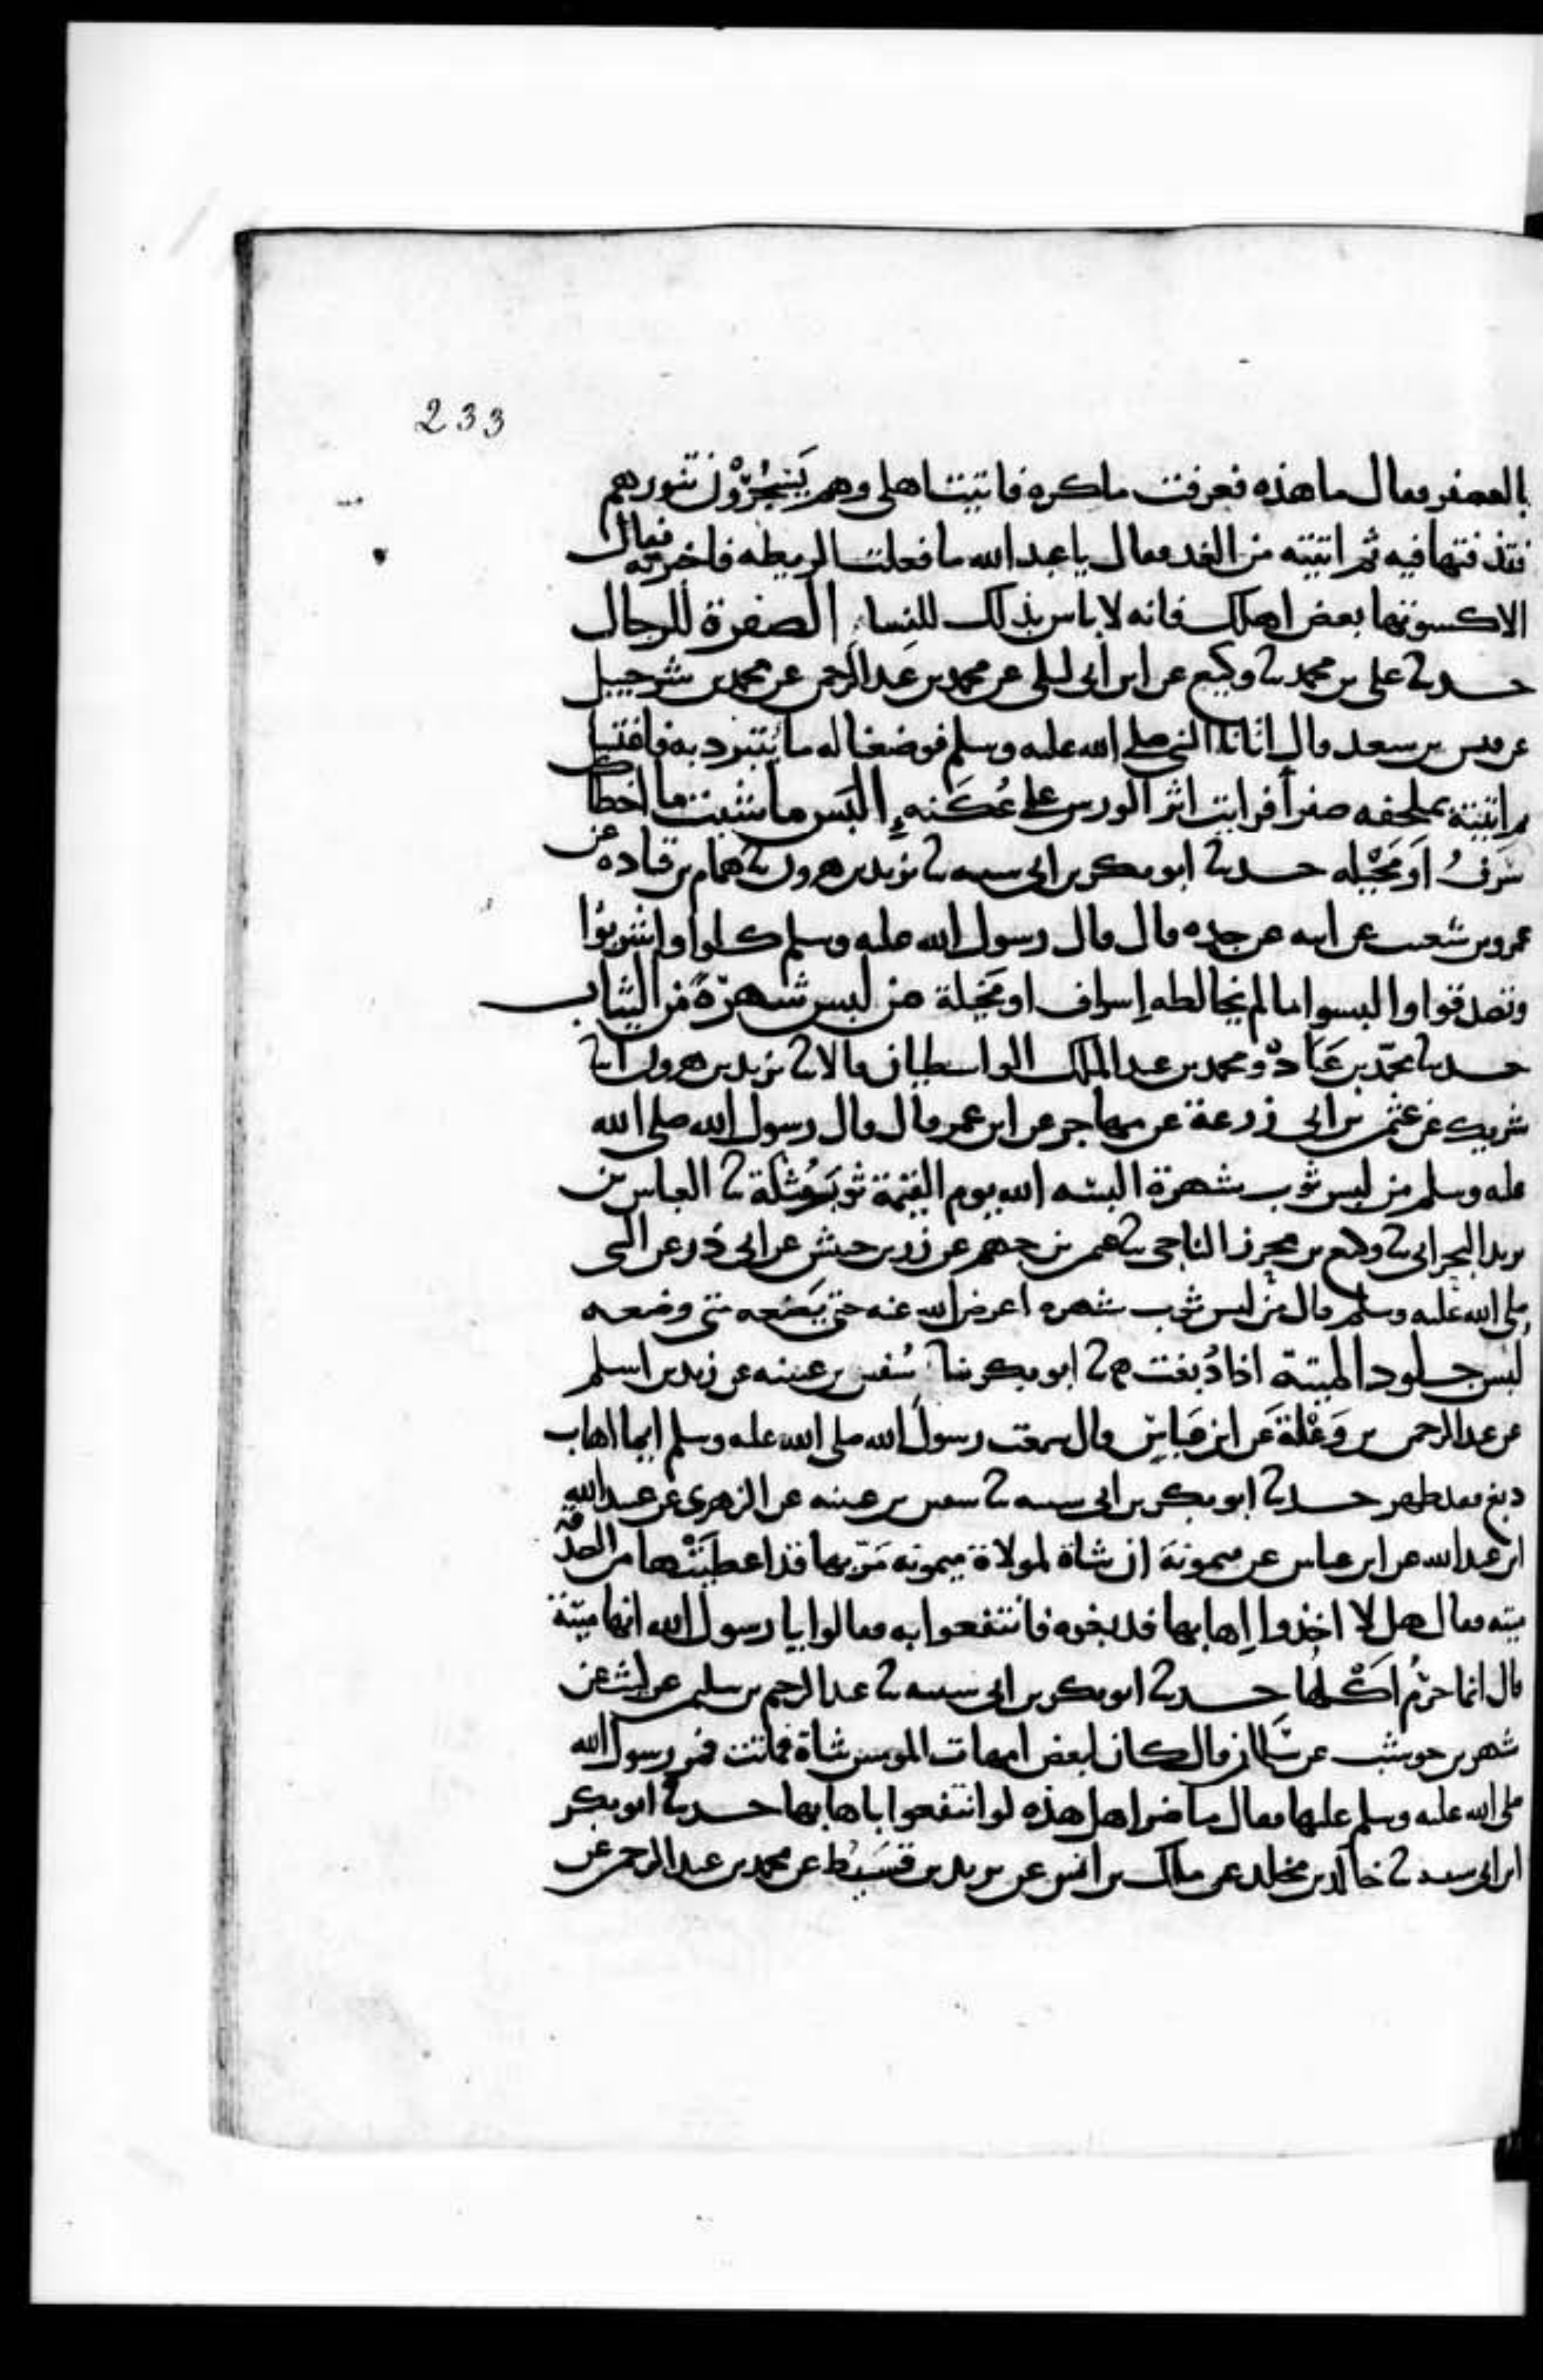 233
بالعصفر فقال ما هذه فعرفت ما كره فاتيت اهلي وهم يَسْجُرُوْن تنورهم
فقذفتها فيه ثم اتيته من الغد فقال يا عبد الله ما فعلت الريطه فاخبرته فقال
الا كسوتها بعض اهلك فانه لا باس بذلك للنساء الصفرة للرجال
حدثنا علي بن محمد ثنا وكيع عن ابن ابي ليلى عن محمد بن عبد الرحمن عن محمد بن شرحبيل
عن قيس بن سعد قال اتانا النبي صلى الله عليه وسلم فوضعنا له ما يتبرد به فاغتسل
ثم اتيته بملحفه صفرا فرايت اثر الورس على عُكَنه البَس ما شئت ما اخطاك
سَرفُ اوَ مَخْيله حدثنا ابو بكر بن ابي شيبه ثنا يزيد بن هرون ثنا همام بن قتاده عن
عمرو بن شعيب عن ابيه عن جده قال قال رسول الله عليه وسلم كلوا واشربوا
وتصدقوا والبسوا ما لم يخالطه إسراف او مَخيلة من لبس شهرَةً من الثياب
حدثنا محمد بن عَبَادْة ومحمد بن عبد الملك الواسطيان قالا ثنا يزيد بن هرون انا
شريك عن عثمن بن ابي زرعة عن مهاجر عن ابن عمر قال قال رسول الله صلى الله
عليه وسلم من لبس ثوب شهرة البسه الله يوم القيمة ثوبَ مُثلة ثنا العباس بن
يزيد البحراني ثنا وكيع بن محرز الناجي ثنا عثمن بن جهم عن زر بن حبيش عن ابي ذر عن النبي
صلى الله عليه وسلم قال من لبس ثوب شهره اعرض الله عنه حتى يَضَعه متى وضعه
لبْس جلود الميتة اذا دُبغت ثنا ابو بكر ثنا سُفين بن عيينه عن زيد بن اسلم
عن عبد الرحمن بن وَعْلة عَن ابن عَباسٍ قال سمعت رسولَ الله صلى الله عليه وسلم ايما اهاب
دبغ فقد طهر حدثنا ابو بكر بن ابي شيبه ثنا سفين بن عيينه عن الزهري عن عبيد الله
ابن عبد الله عن ابن عباس عن ميمونة ان شاة لمولاة ميمونه مَرّ بها قد اعطيَتْها من الصدقه
ميته فقال هل لا اخذوا إهابها فدبغوه فانتفعوا به فقالوا يا رسول الله انها ميّتة
قال انما حرُم اَكْلها حدثنا ابو بكر بن ابي شيبه ثنا عبد الرحيم بن سليمن عن ليث عن
شهر بن حوشب عن سَلمان قال كان لبعض امهات المومنين شاة فماتت فمر رسول الله
صلى الله عليه وسلم عليها فقال ما ضر اهل هذه لو انتفعوا باهابها حدثنا ابو بكر
ابن ابي شيبه ثنا خالد بن مخلد عن ملك بن انس عن يزيد بن قسَيْط عن محمد بن عبد الرحمن عن